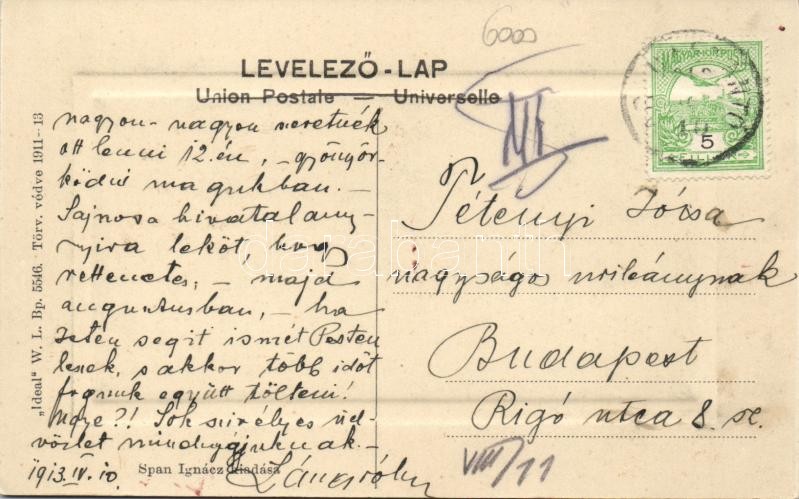 6000
LEVELEZŐ-LAP
Union Postale — Universelle
MAGYAR KIR. POSTA
5
FILLÉR
nagyon-nagyon szeretnék
ott lenni 12.én, – gyönyör-
ködni magukban. –
Sajnos a hivatal any-
nyira leköt, hogy
rettenetes, – majd
augusztusban, – ha
Isten segit ismét Pesten
leszek, s akkor több időt
fogunk együtt tölteni!
Ugye?! Sok szivélyes üd-
vözlet mindnyájuknak –
1913. IV. 10.
Span Ignácz kiadása
"Ideal" W. L. Bp. 5546. Törv. védve 1911–13
Tétényi Józsa
nagyságos urileánynak
Budapest
Rigó utca 8. sz.
VIII/11